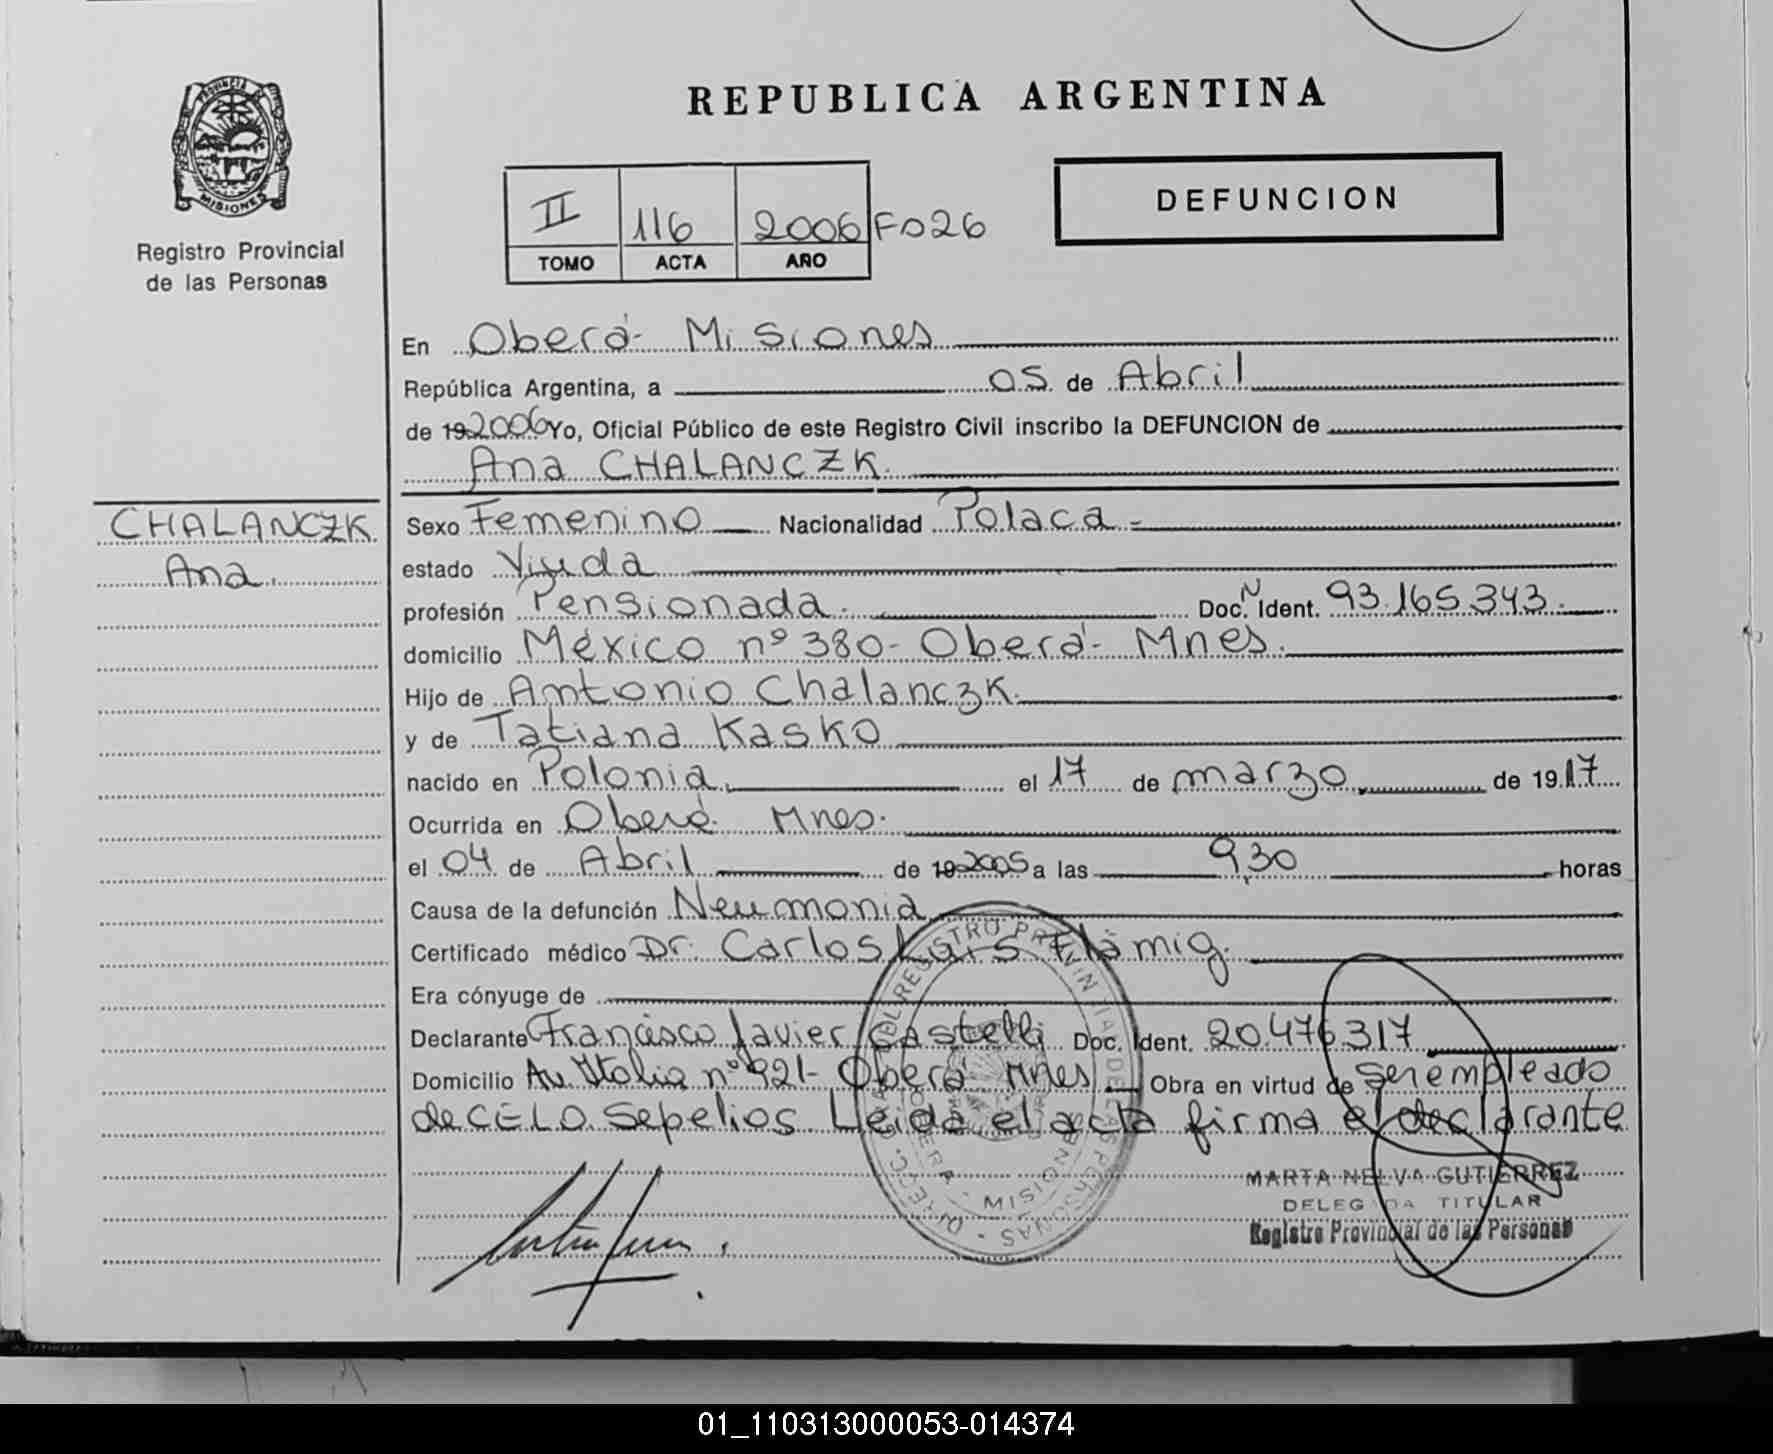 PROVINCIA DE
MISIONES
Registro Provincial
de las Personas
REPUBLICA ARGENTINA
II 116 2006 Fº 26
TOMO ACTA AÑO
DEFUNCION
En Oberá- Misiones
República Argentina, a 05 de Abril
de 192006 Yo, Oficial Público de este Registro Civil inscribo la DEFUNCION de
Ana CHALANCZK.
CHALANCZK
Ana.
Sexo Femenino Nacionalidad Polaca -
estado Viuda
profesión Pensionada. Doc. N Ident. 93.165.343.
domicilio México nº 380- Oberá- Mnes.
Hijo de Antonio Chalanczk.
y de Tatiana Kasko
nacido en Polonia, el 17 de marzo, de 1917
Ocurrida en Oberá Mnes.
el 04 de Abril de 192005 a las 9,30 horas
Causa de la defunción Neumonia
Certificado médico Dr. Carlos Luis Flämig.
Era cónyuge de
Declarante Francisco Javier Castelli Doc. Ident. 20.476.317
Domicilio Av. Italia nº 921- Oberá Mnes Obra en virtud de ser empleado
de CELO Sepelios. Leida el acta firma el declarante
MARTA NELVA GUTIERREZ
DELEGADA TITULAR
Registro Provincial de las Personas
DIRECC. GRAL. DEL REGISTRO PROVINCIAL DE LAS PERSONAS
OBERA - MISIONES
01_110313000053-014374